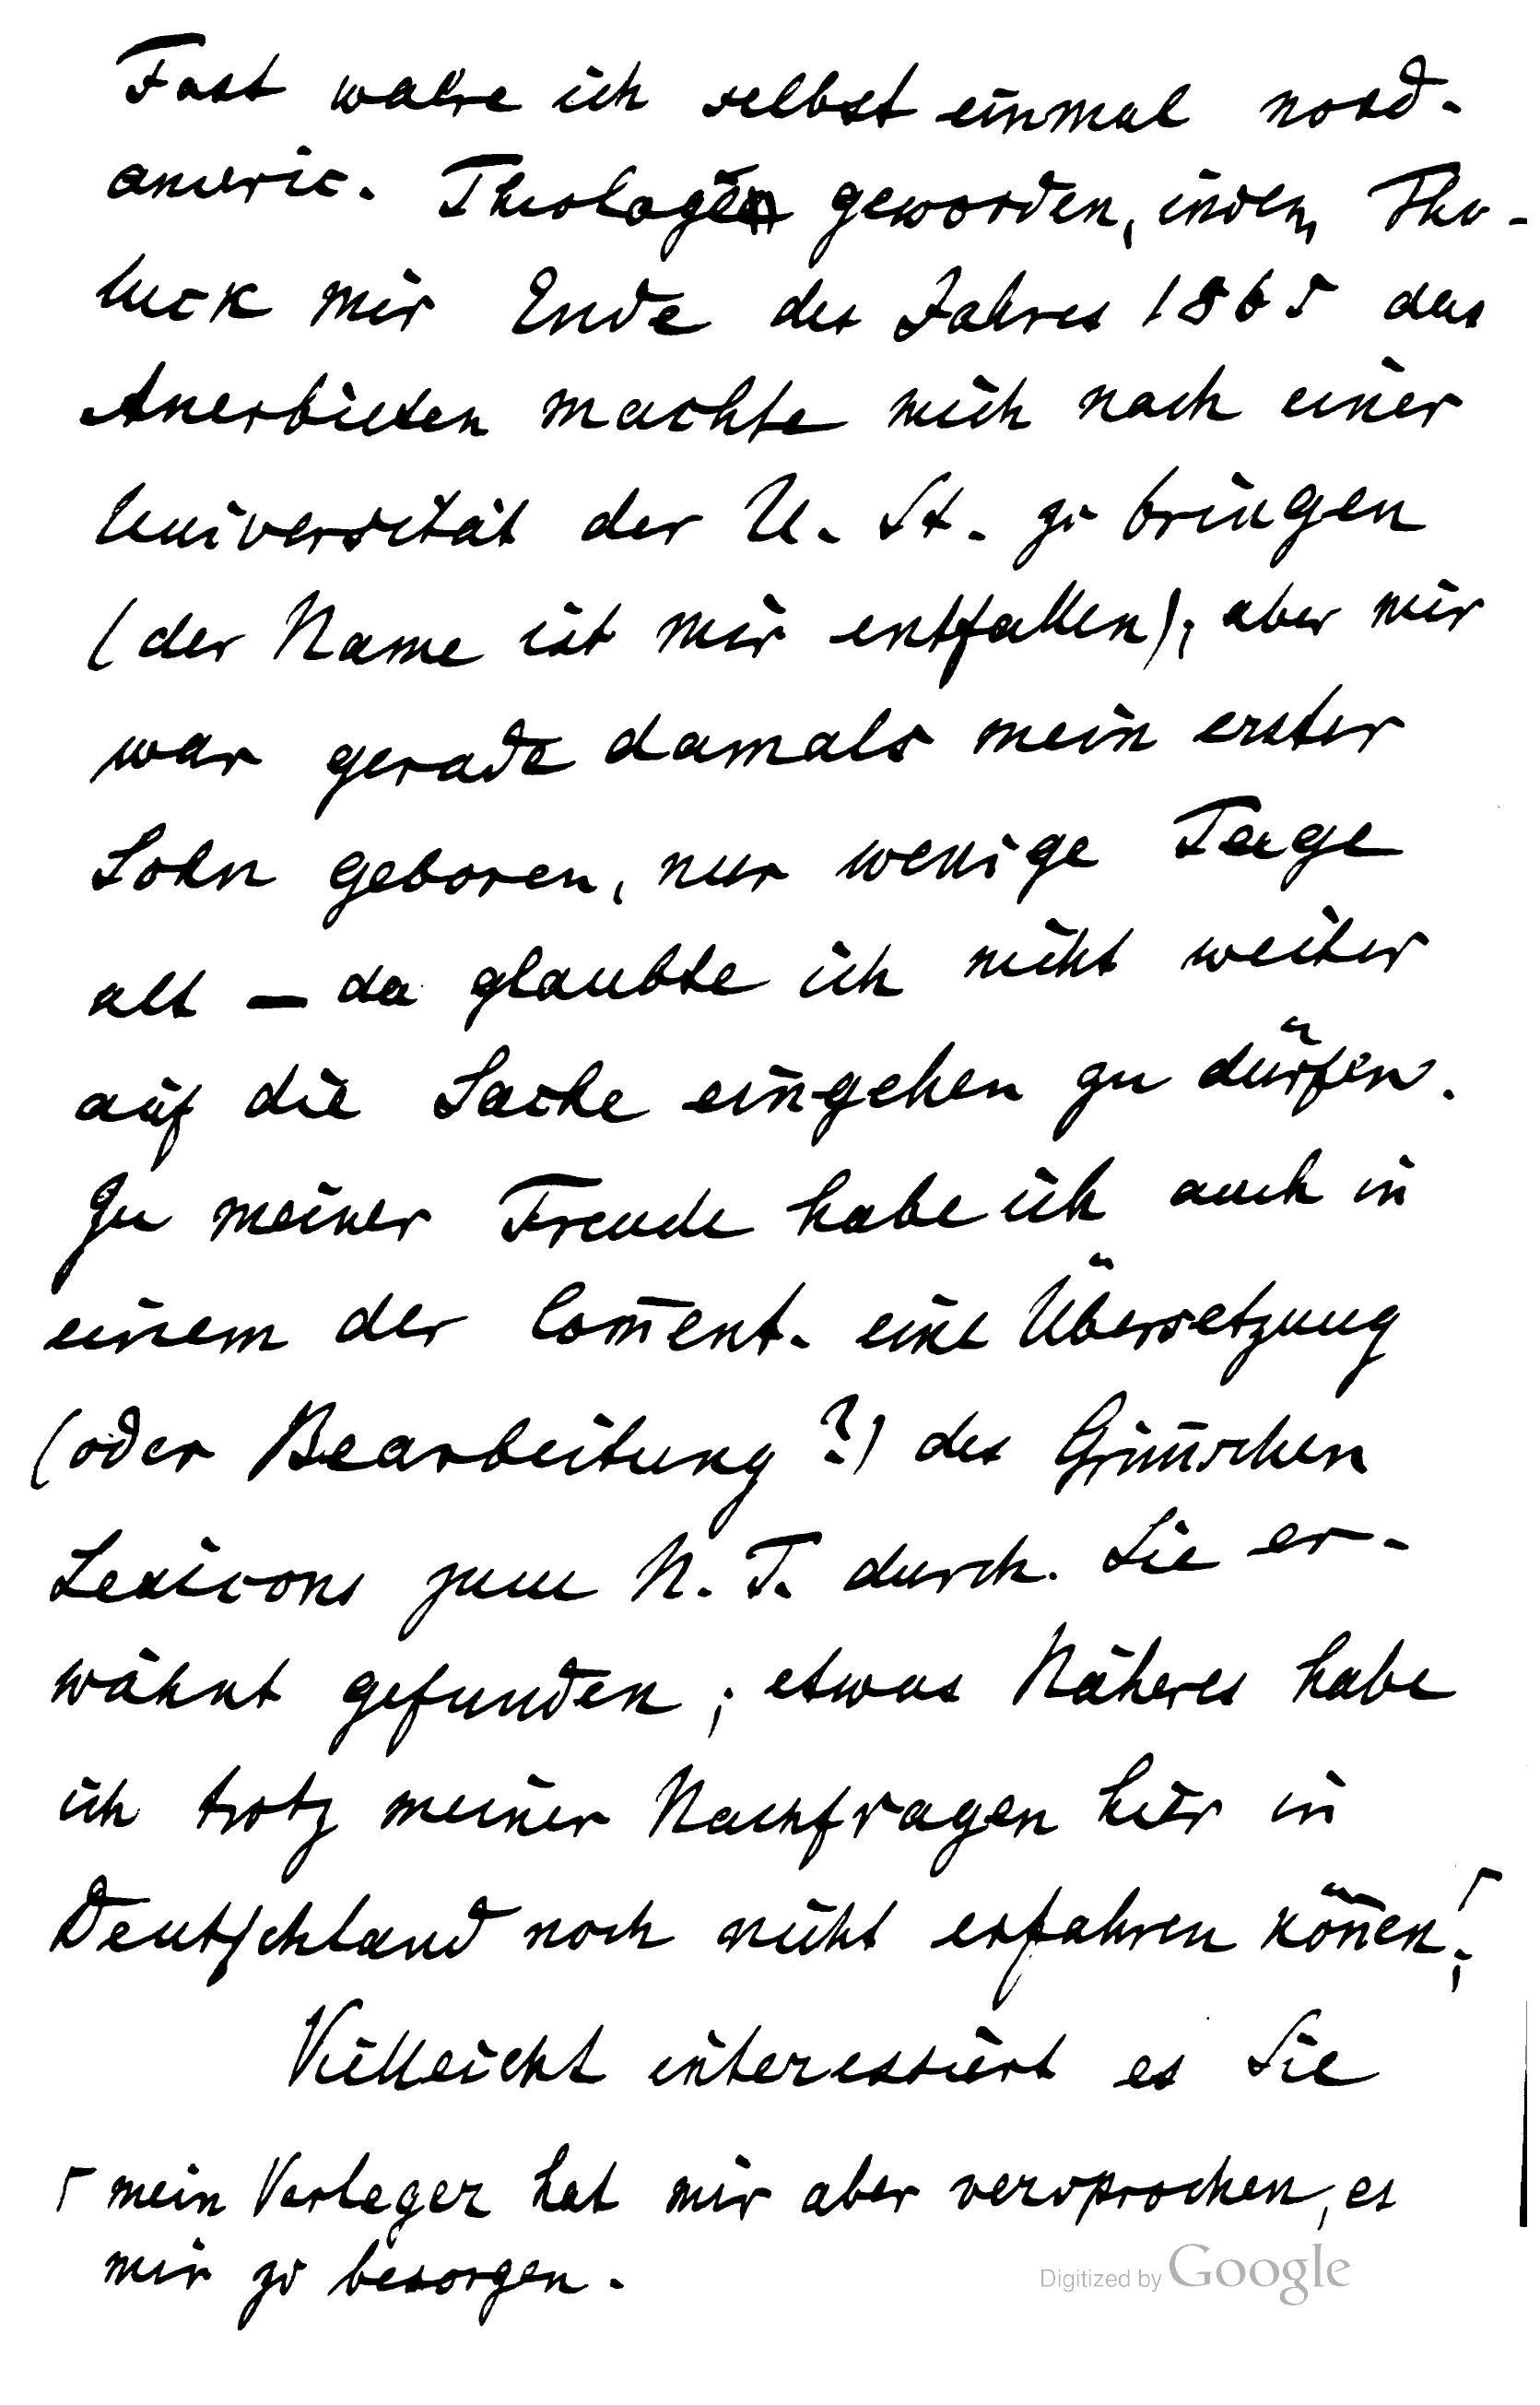 Fast wäre ich selbst einmal nord-
americ. Theologe geworden, indem Tho-
luck mir Ende des Jahres 1865 das
Anerbieten machte mich nach einer
Universität der U. St. zu bringen
(der Name ist mir entfallen); aber mir
war gerade damals mein erster
Sohn geboren, nur wenige Tage
alt — da glaubte ich nicht weiter
auf die Sache eingehen zu dürfen.
Zu meiner Freude habe ich auch in
einem der Com̄ent. eine Übersetzung
(oder Bearbeitung?) des Grim̄schen
Lexicons zum N. T. durch Sie er-
wähnt gefunden; etwas Näheres habe
ich trotz meiner Nachfragen hier in
Deutschland noch nicht erfahren kön̄en;⌈
Vielleicht interessiert es Sie
⌈ mein Verleger hat mir aber versprochen, es
mir zu besorgen.
Digitized by Google